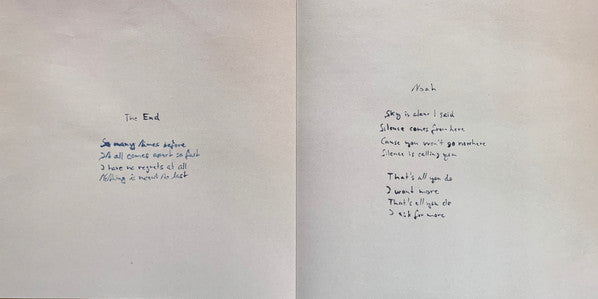 The End
So many times before
It all comes apart so fast
I have no regrets at all
Nothing is meant to last
Noah
Sky is clear I said
Silence comes from here
Cause you won't go nowhere
Silence is calling you
That's all you do
I want more
That's all you do
I ask for more